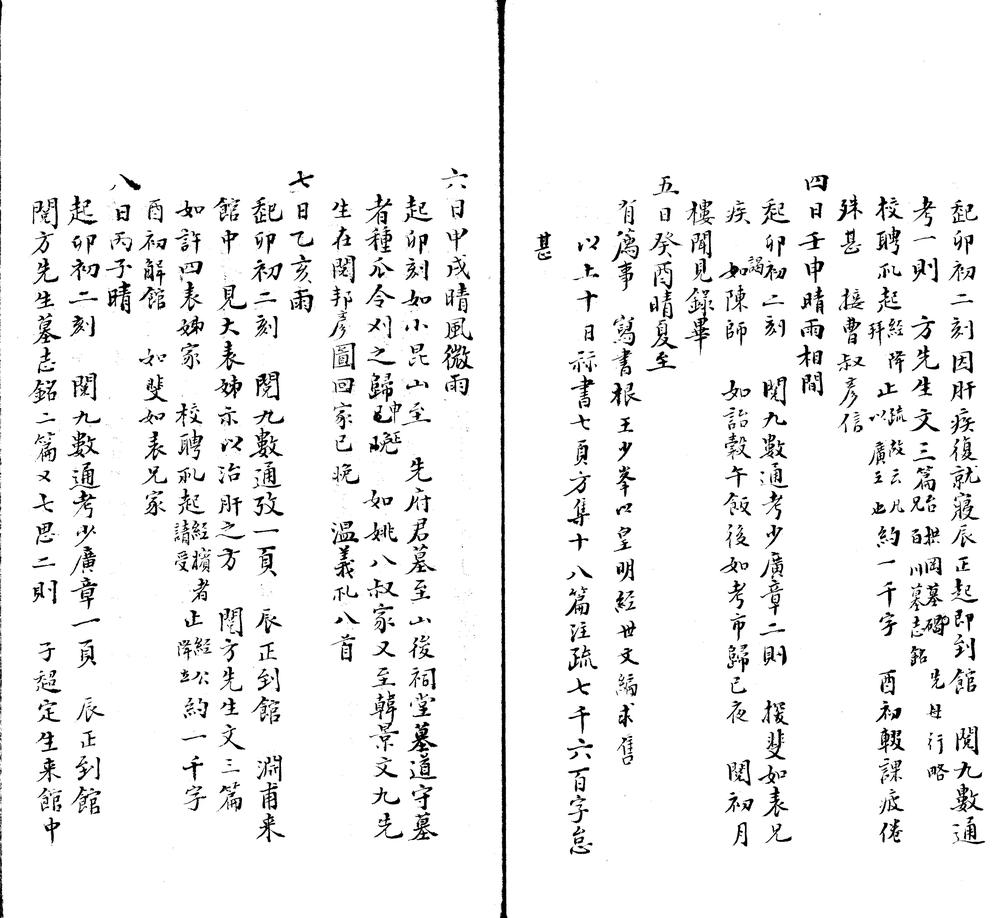 起卯初二刻因肝疾復就寢辰正起即到館　閱九數通
考一則　方先生文三篇台拱岡墓碣　先母行略
兄百川墓志銘
校聘礼起經降止疏故云凡約一千字　酉初輟課疲倦
拜　以廣王也
殊甚　接曹叔彥信
四日壬申晴雨相間
起卯初二刻　閱九數通考少廣章二則　援斐如表兄
疾　謁如陳師　如詒穀午飯後如考市歸已夜　閱初月
樓聞見錄畢
五日癸酉晴夏至
有薦事　寫書根　王少峯以皇明經世文編求售
以上十日札書七頁方集十八篇注疏七千六百字怠
甚
六日甲戌晴風微雨
起卯刻如小昆山至　先府君墓至山後祠堂墓道守墓
者種瓜令刈之歸已晚　如姚八叔家又至韓景文九先
生在閱邦彥圖回家已晚　溫義礼八首
七日乙亥雨
起卯初二刻　閱九數通攷一頁　辰正到館　淵甫来
館中　見大表姊示以治肝之方　閱方先生文三篇
如許四表姊家　校聘礼起經擯者止經公約一千字
請受　降立
酉初解館　如斐如表兄家
八日丙子晴
起卯初二刻　閱九數通考少廣章一頁　辰正到館
閱方先生墓志銘二篇又七思二則　子超定生来館中